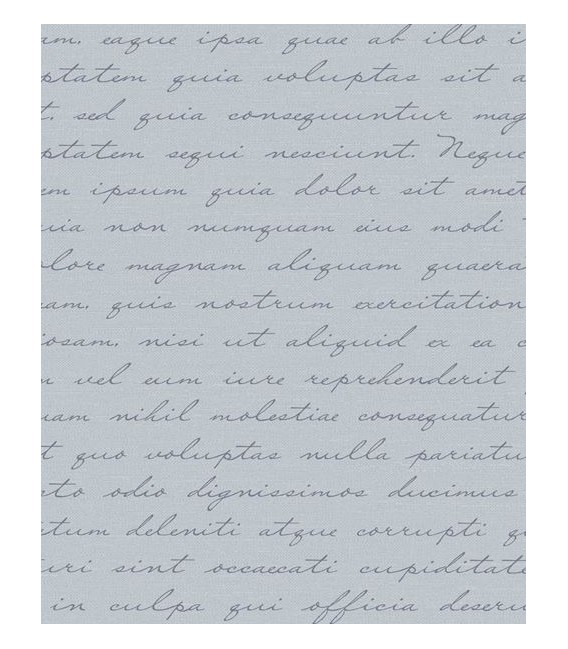 am. eaque ipsa quae ab illo i
ptatem quia voluptas sit a
t. sed quia consequuntur mag
ptatem sequi nesciunt. Neque
em ipsum quia dolor sit amet
uia non numquam eius modi
lore magnam aliquam quaera
am. quis nostrum exercitation
iosam. nisi ut aliquid ex ea c
m vel eum iure reprehenderit
uam nihil molestiae consequatur
t quo voluptas nulla pariatu
cto odio dignissimos ducimus
tum deleniti atque corrupti q
uri sint occaecati cupiditate
in culpa qui officia deseru